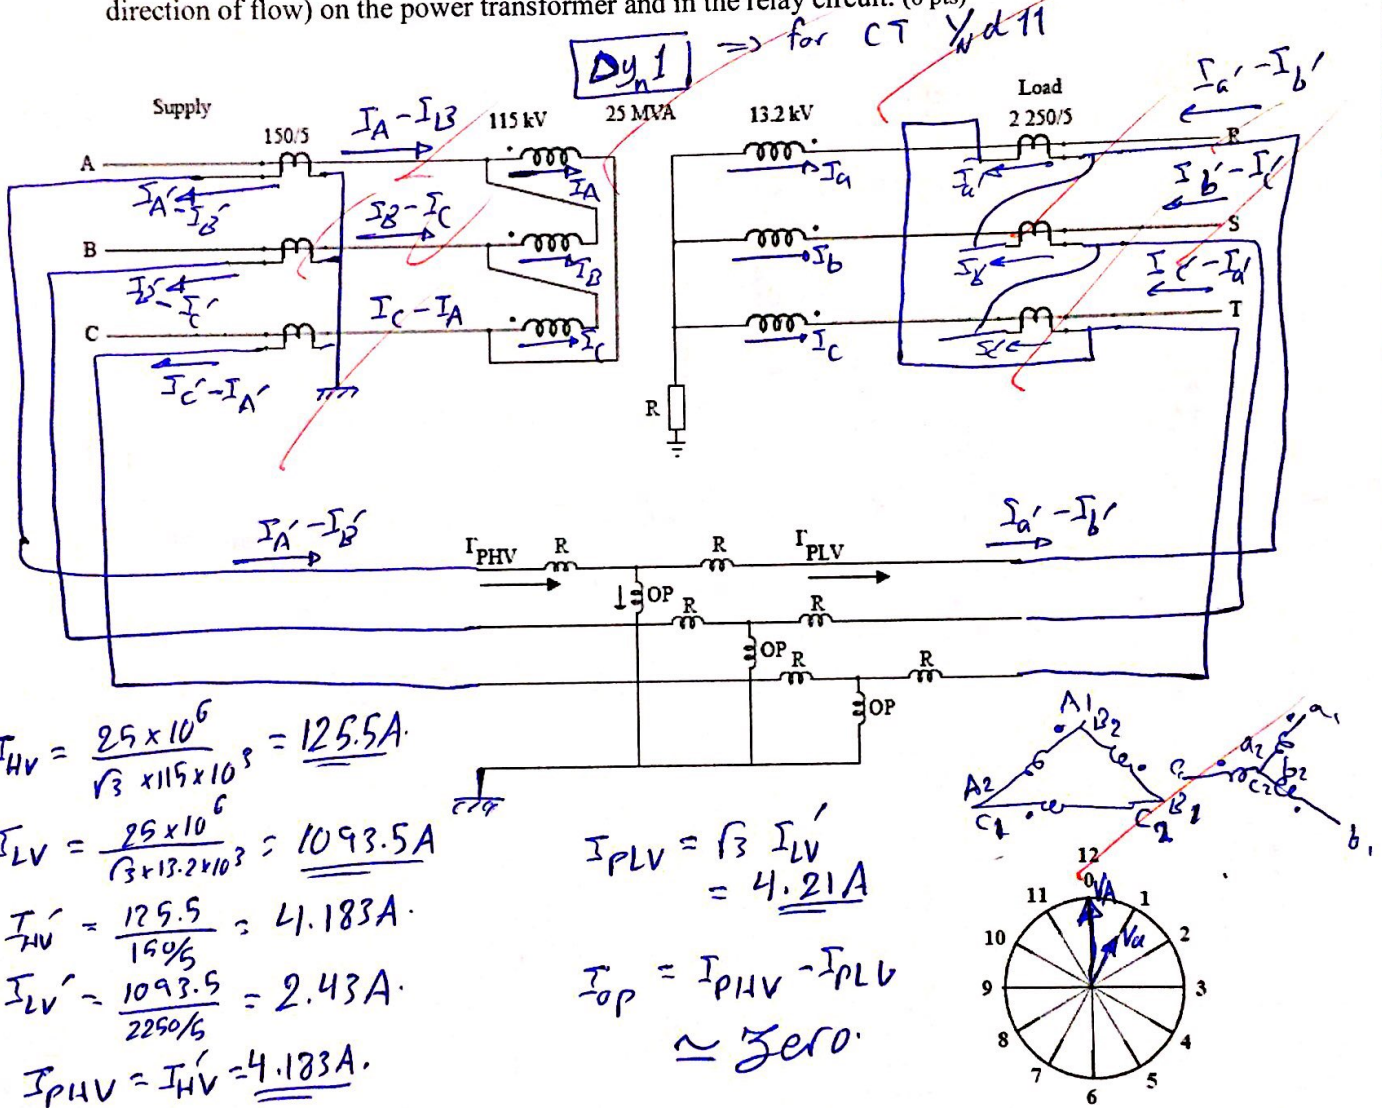 direction of flow) on the power transformer and in the relay circuit. (6 pts)
Dyn1 => for CT YNd11
Supply
Load
150/5
IA-IB
115 kV
25 MVA
13.2 kV
2 250/5
Ia'-Ib'
A
IA
Ia
Ia'
R
IA'-IB'
IB-IC
Ib'-Ic'
B
IB
Ib
Ib'
S
IB'-IC'
Ic'-Ia'
IC-IA
C
IC
Ic
Ic'
T
IC'-IA'
R
IA'-IB'
Ia'-Ib'
IPHV R R IPLV
OP R R
OP R R
OP
IHV = 25x10^6 / √3 x115x10^3 = 125.5A.
ILV = 25x10^6 / √3x13.2x10^3 = 1093.5A
IHV' = 125.5 / 150/5 = 4.183A.
ILV' = 1093.5 / 2250/5 = 2.43A.
IPHV = IHV' = 4.183A.
IPLV = √3 ILV'
= 4.21A
Iop = IPHV - IPLV
≃ Zero.
A1 B2
A2
C1
C2 B1
a1
a2 b2
c2
b1
12
0 VA
11 1
10 Va 2
9 3
8 4
7 5
6